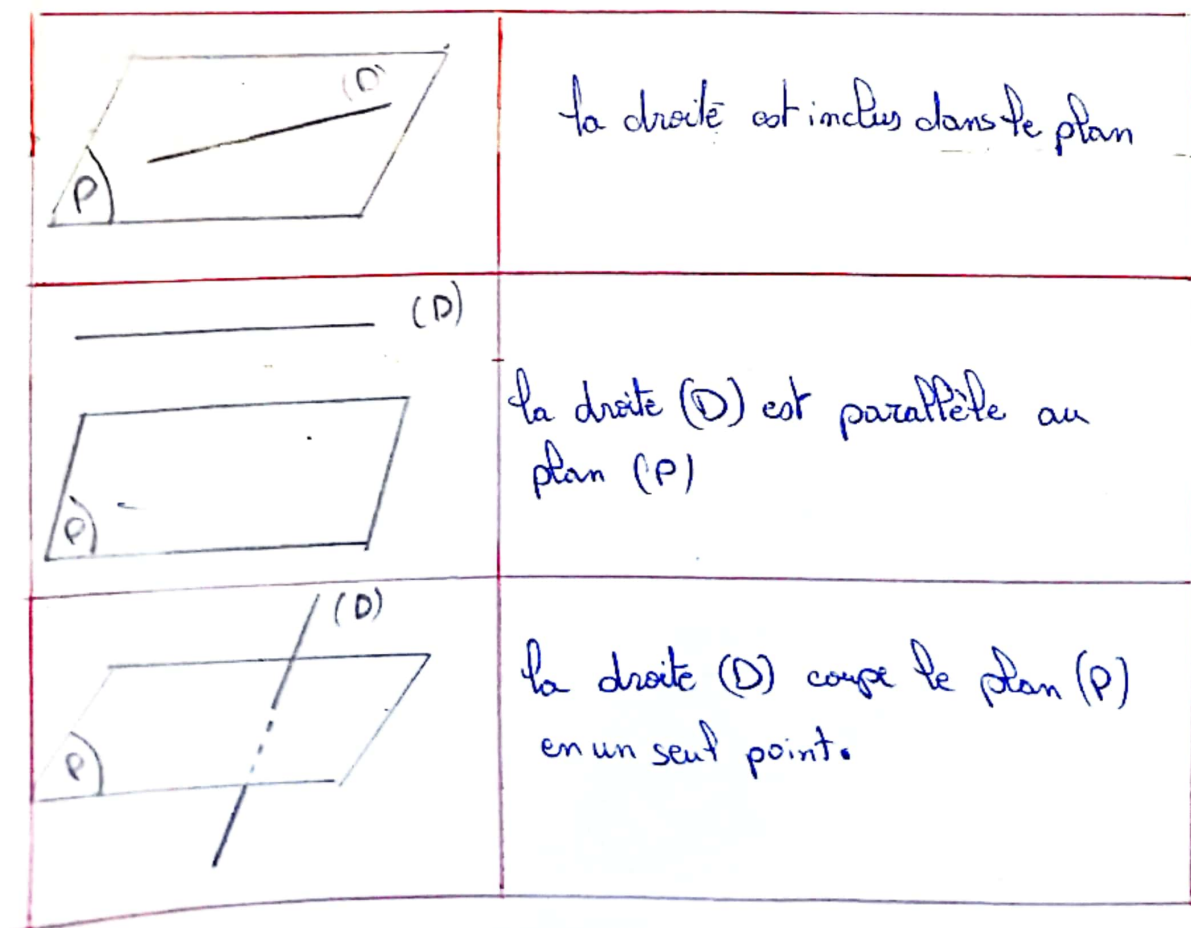 (D)
P
la droite est inclus dans le plan
(D)
P
la droite (D) est parallèle au
plan (P)
(D)
P
la droite (D) coupe le plan (P)
en un seul point.